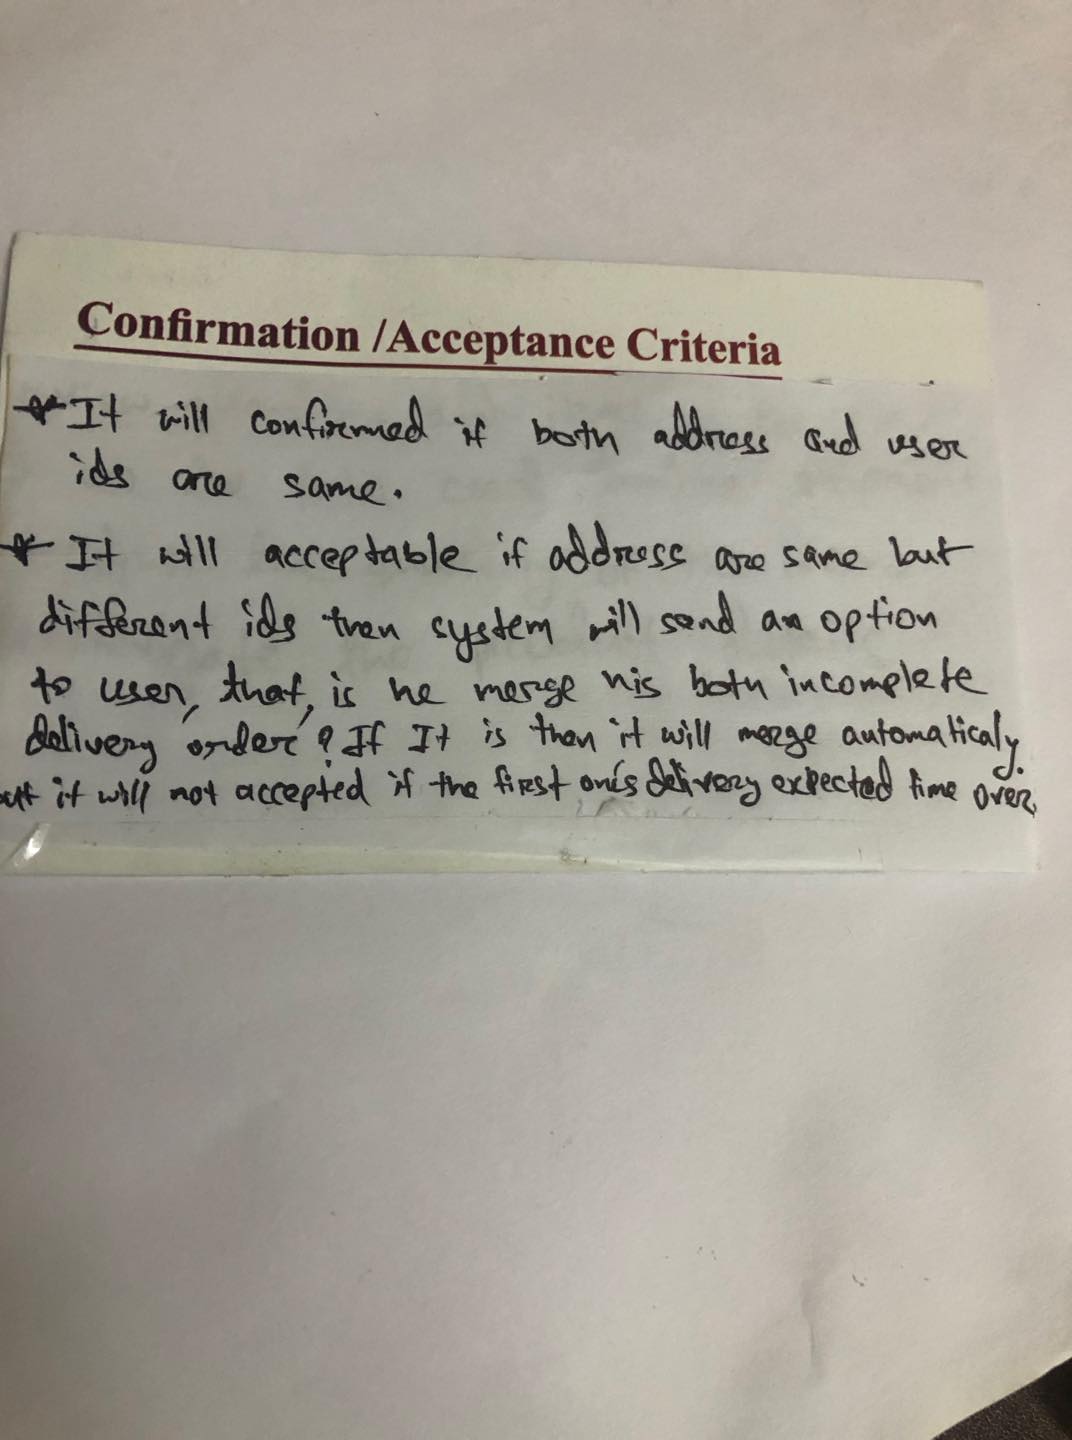 Confirmation /Acceptance Criteria
* It will confirmed if both address and user
ids are same.
* It will acceptable if address are same but
different ids then system will send an option
to user, that, is he merge his both incomplete
delivery order? If It is then it will merge automaticaly.
but it will not accepted if the first one's delivery expected time over.